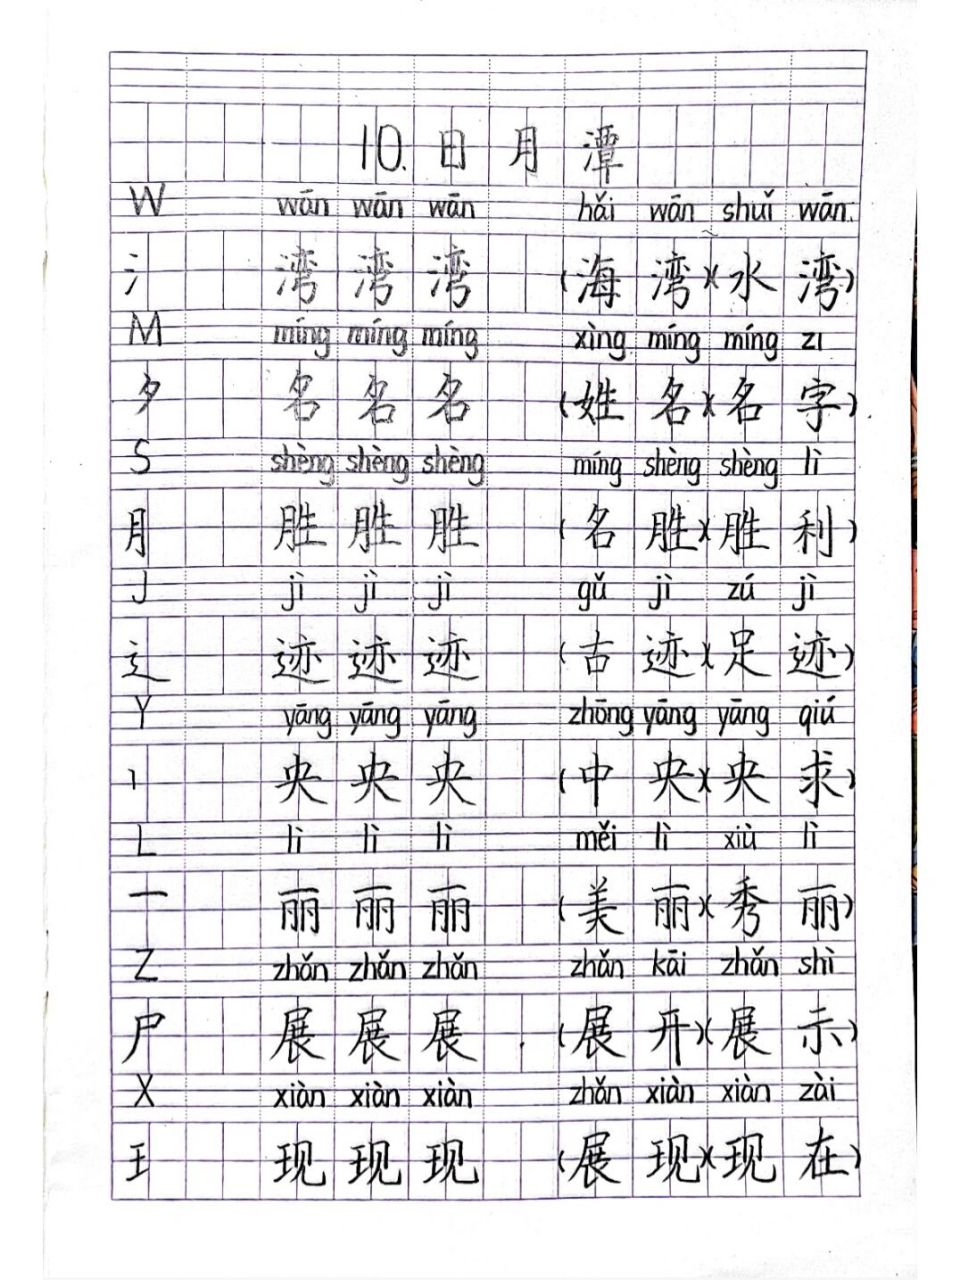 10. 日 月 潭
W wān wān wān hǎi wān shuǐ wān
氵 湾 湾 湾 (海 湾)(水 湾)
M míng míng míng xìng míng míng zì
夕 名 名 名 (姓 名)(名 字)
S shèng shèng shèng míng shèng shèng lì
月 胜 胜 胜 (名 胜)(胜 利)
J jì jì jì gǔ jì zú jì
辶 迹 迹 迹 (古 迹)(足 迹)
Y yāng yāng yāng zhōng yāng yāng qiú
丨 央 央 央 (中 央)(央 求)
L lì lì lì měi lì xiù lì
一 丽 丽 丽 (美 丽)(秀 丽)
Z zhǎn zhǎn zhǎn zhǎn kāi zhǎn shì
尸 展 展 展 (展 开)(展 示)
X xiàn xiàn xiàn zhǎn xiàn xiàn zài
王 现 现 现 (展 现)(现 在)